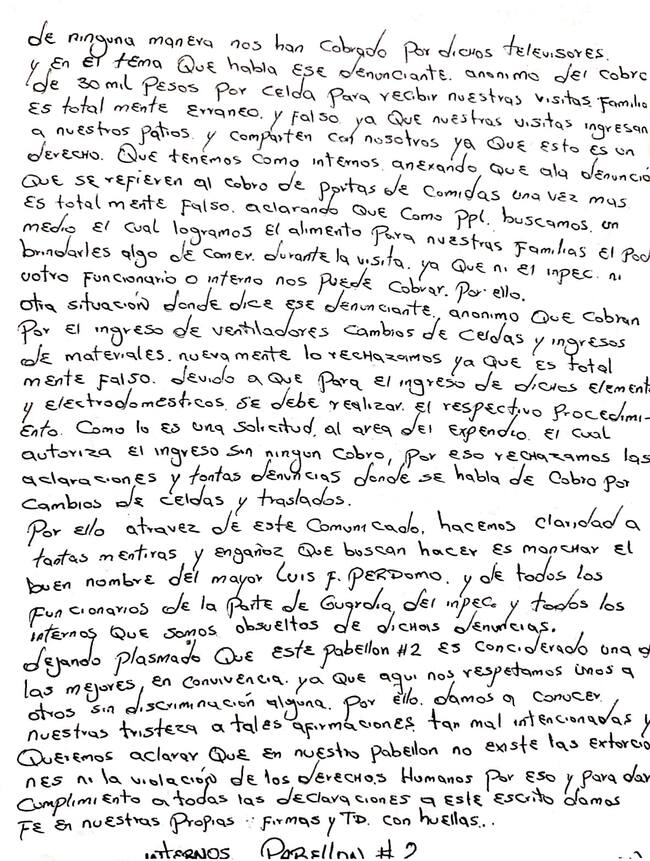 de ninguna manera nos han cobrado por dichos televisores.
y en el tema que habla ese denunciante. anonimo del cobro
de 30 mil pesos por celda para recibir nuestras visitas familia
es total mente erraneo. y falso. ya que nuestras visitas ingresan
a nuestros patios. y comparten con nosotros ya que esto es un
derecho. que tenemos como internos. anexando que ala denunció
que se refieren al cobro de portas de comidas una vez mas
es total mente falso. aclarando que como ppl. buscamos. un
medio el cual logramos el alimento para nuestras familias el pod
brindarles algo de comer. durante la visita. ya que ni el inpec. ni
uotro funcionario o interno nos puede cobrar. por ello.
otra situación donde dice ese denunciante, anonimo que cobran
por el ingreso de ventiladores cambios de celdas y ingresos
de materiales. nueva mente lo rechazamos ya que es total
mente falso. devido a que para el ingreso de dichos element
y electrodomesticos. se debe realizar. el respectivo procedimi-
ento. como lo es una solicitud. al area del expendio. el cual
autoriza el ingreso sin ningun cobro, por eso rechazamos las
aclaraciones y tontas denuncias donde se habla de cobro por
cambios de celdas y traslados.
Por ello atravez de este comunicado. hacemos claridad a
tantas mentiras y engañoz que buscan hacer es manchar el
buen nombre del mayor Luis F. PERDOMO. y de todos los
funcionarios de la parte de Guardia del inpec. y todos los
internos que somos obsueltos de dichas denuncias.
dejando plasmado que este pabellon #2 es conciderado una d
las mejores, en convivencia. ya que aqui nos respetamos unos a
otros sin discriminación alguna. por ello. damos a conocer
nuestras tristeza a tales afirmaciones tan mal intencionadas y
queremos aclarar que en nuestro pabellon no existe las extorcio
nes ni la violación de los derechos Humanos por eso y para dar
cumplimiento a todas las declaraciones a este escrito damos
Fe en nuestras propias firmas y TD. con huellas...
internos PABELLON #2